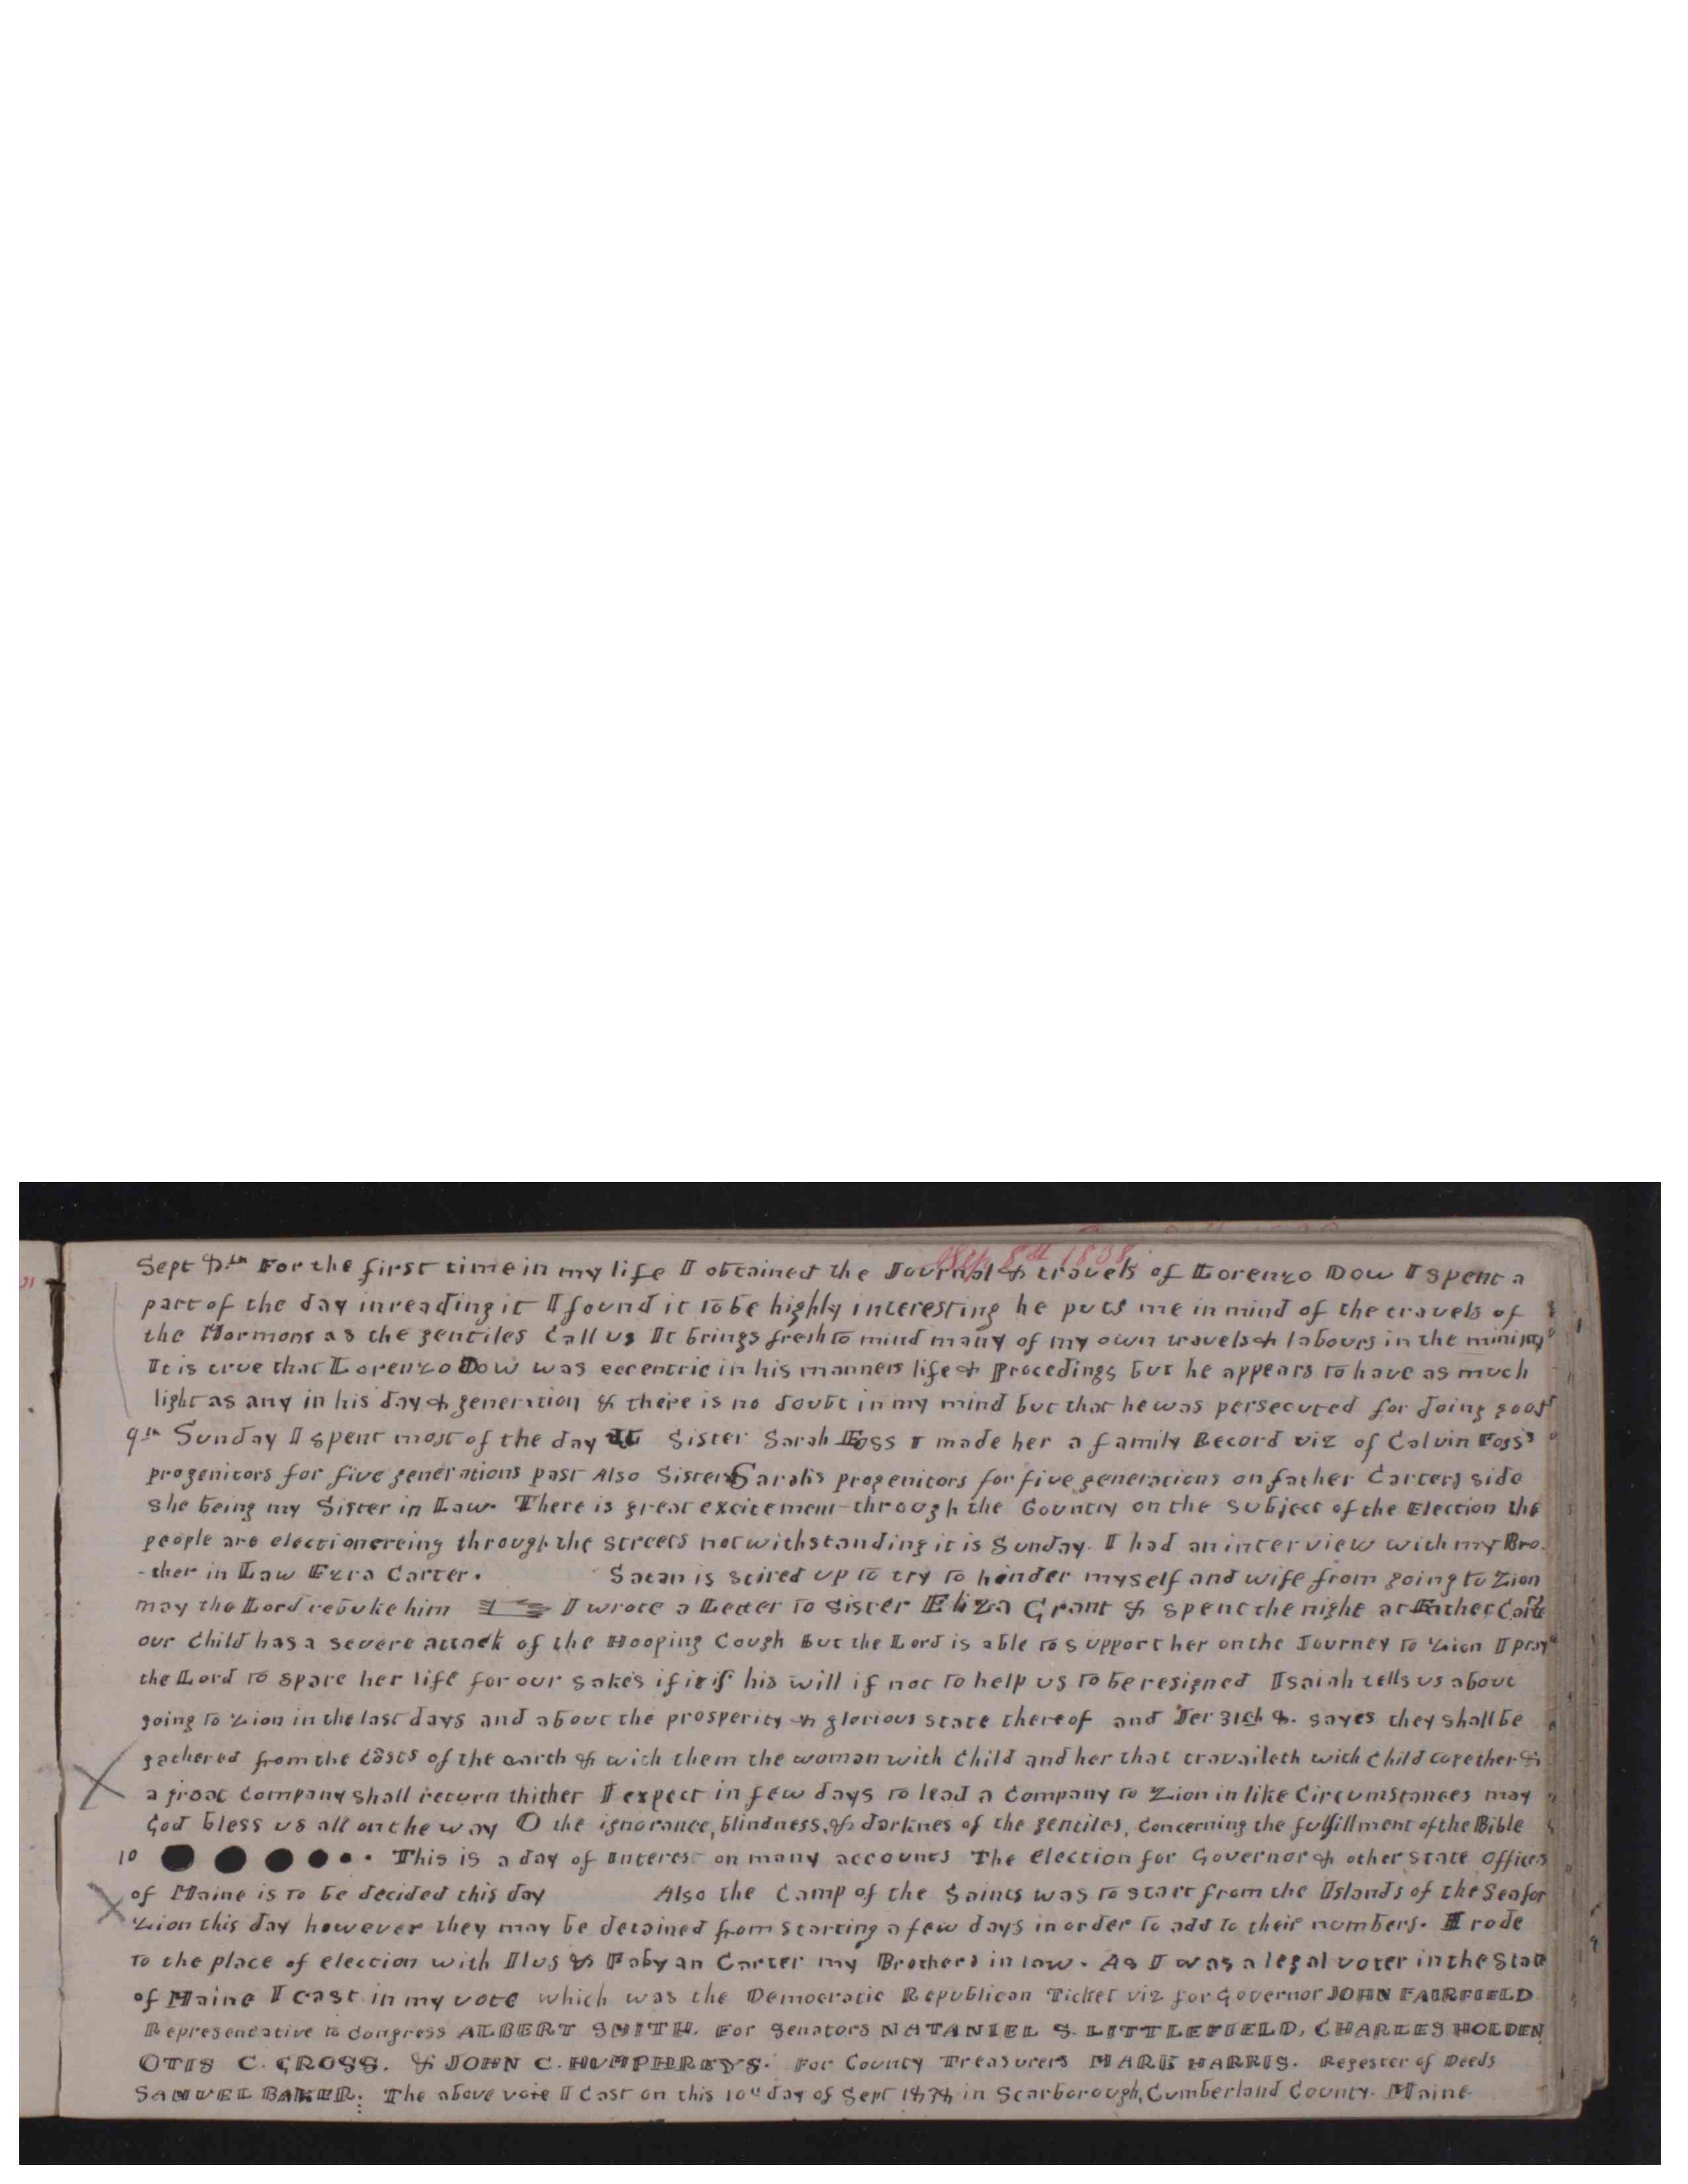 Sep 8th 1838.
Sept 8.th For the first time in my life I obtained the Journal & travels of Lorenzo Dow I spent a
part of the day in reading it I found it to be highly interesting he puts me in mind of the travels of
the Mormons as the gentiles Call us It brings fresh to mind many of my own travels & labours in the
It is true that Lorenzo Dow was eccentric in his manners life & Procedings but he appears to have as much
light as any in his day & generation & there is no doubt in my mind but that he was persecuted for doing good
9th Sunday I spent most of the day At Sister Sarah Foss I made her a family Record viz of Calvin Foss's
progenitors for five generations past Also Sister Sarah's progenitors for five generations on father Carters side
she being my Sister in Law. There is great excitement through the Country on the Subject of the Election the
people are electionereing through the streets notwithstanding it is Sunday. I had an interview with my Bro-
-ther in Law Ezra Carter. Satan is stired up to try to hinder myself and wife from going to Zion
may the Lord rebuke him I wrote a Letter to Sister Eliza Grant & spent the night at Father
our Child has a severe attack of the Hooping Cough But the Lord is able to support her on the Journey to Zion I pray
the Lord to spare her life for our sakes if it is his will if not to help us to be resigned Isaiah tells us about
going to Zion in the last days and about the prosperity & glorious state thereof and Jer 31ch 8. sayes they shall be
gathered from the Costs of the earth & with them the woman with Child and her that travaileth with Child together &
a great Company shall return thither I expect in few days to lead a Company to Zion in like Circumstances may
God bless us all on the way O the ignorance, blindness, & darknes of the gentiles, Concerning the fulfillment of the Bible
10 This is a day of Interest on many accounts The Election for Governor & other State offices
of Maine is to be decided this day Also the Camp of the Saints was to start from the Islands of the Sea for
Zion this day however they may be detained from starting a few days in order to add to their numbers. I rode
to the place of election with Ilus & Fabyan Carter my Brothers in law. As I was a legal voter in the State
of Maine I cast in my vote which was the Democratic Republican Ticket viz for Governor JOHN FAIRFIELD
Representative to Congress ALBERT SMITH. For Senators NATANIEL S. LITTLEFIELD, CHARLES HOLDEN,
OTIS C. CROSS. & JOHN C. HUMPHREYS. For County Treasurers MARK HARRIS. Regester of Deeds
SAMUEL BAKER. The above vote I Cast on this 10th day of Sept 1838 in Scarborough, Cumberland County. Maine